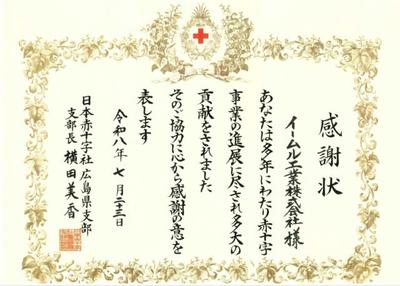 感謝状
イームル工業株式会社 様
あなたは多年にわたり赤十字
事業の進展に尽され多大の
貢献をされました
そのご協力に心から感謝の意を
表します
令和八年 七月二十三日
日本赤十字社 広島県支部
支部長 横田美香